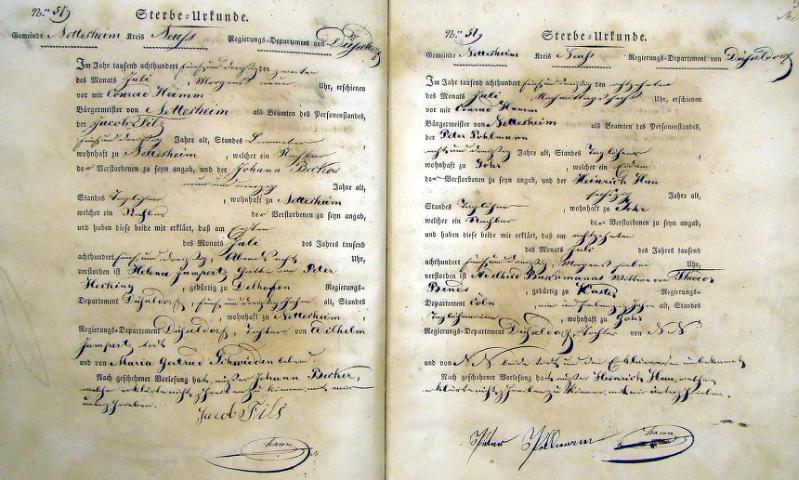 Sterbe-Urkunde.
Gemeinde Nettesheim Kreis Neuss Regierungs-Departement von Düsseldorf
Im Jahr tausend achthundert fünf und dreißig den zweiten
des Monats Juli Morgens neun Uhr, erschienen
vor mir Conrad Hamm
Bürgermeister von Nettesheim als Beamten des Personenstandes,
der Jacob Fils
fünf und dreißig Jahre alt, Standes
wohnhaft zu Nettesheim, welcher ein Nachbar
der Verstorbenen zu seyn angab, und der Johann Becker
Jahre alt,
Standes Taglöhner, wohnhaft zu Nettesheim
welcher ein Nachbar der Verstorbenen zu seyn angab,
und haben diese beide mir erklärt, daß am ersten
des Monats Juli des Jahres tausend
achthundert fünf und dreißig, Abends acht Uhr,
verstorben ist Helena Jumpertz Gattin von Peter
Hecking, gebürtig zu Delhofen Regierungs-
Departement Düsseldorf, fünf und dreißig Jahre alt, Standes
, wohnhaft zu Nettesheim
Regierungs-Departement Düsseldorf, Tochter von Wilhelm
Jumpertz
und von Maria Gertrud Schwidden
Nach geschehener Vorlesung hat, außer Johann Becker,
welcher erklärte nicht schreiben zu können, mit mir
unterschrieben.
Jacob Fils
Hamm
Sterbe-Urkunde.
Gemeinde Nettesheim Kreis Neuss Regierungs-Departement von Düsseldorf
Im Jahr tausend achthundert fünf und dreißig den achtzehnten
des Monats Juli Nachmittags Uhr, erschienen
vor mir Conrad Hamm
Bürgermeister von Nettesheim als Beamten des Personenstandes,
der Peter Pohlmann
acht und dreißig Jahre alt, Standes Taglöhner
wohnhaft zu Gohr, welcher ein Eidam
der Verstorbenen zu seyn angab, und der Heinrich Hau
Jahre alt,
Standes Taglöhner, wohnhaft zu Gohr
welcher ein Nachbar der Verstorbenen zu seyn angab,
und haben diese beide mir erklärt, daß am achtzehnten
des Monats Juli des Jahres tausend
achthundert fünf und dreißig, Morgens sieben Uhr,
verstorben ist Adelheid Wittwe von Theodor
, gebürtig zu Caster Regierungs-
Departement Cöln, Jahre alt, Standes
Taglöhnerin, wohnhaft zu Gohr
Regierungs-Departement Düsseldorf Tochter von NN
und von NN beide todt und den Erklärenden unbekannt
Nach geschehener Vorlesung hat außer Heinrich Hau, welcher
erklärte nicht schreiben zu können, mit mir unterschrieben.
Peter Pollmann
Hamm